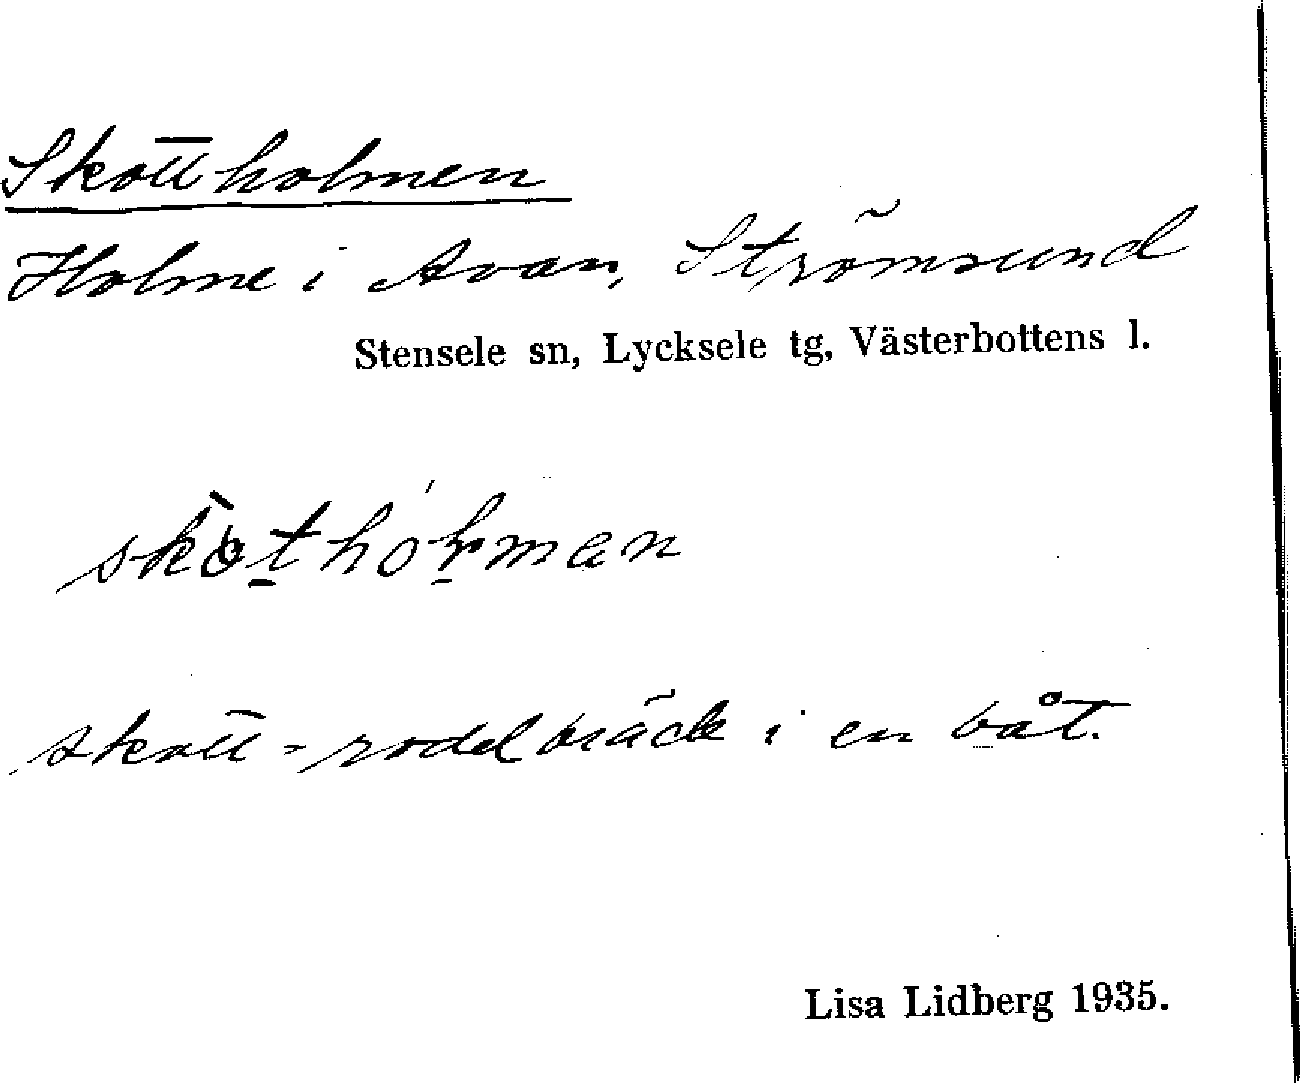 Skottholmen
Holme i Avan, Strömsund
Stensele sn, Lycksele tg, Västerbottens l.
skott = roddbräck i en båt.
Lisa Lidberg 1935.